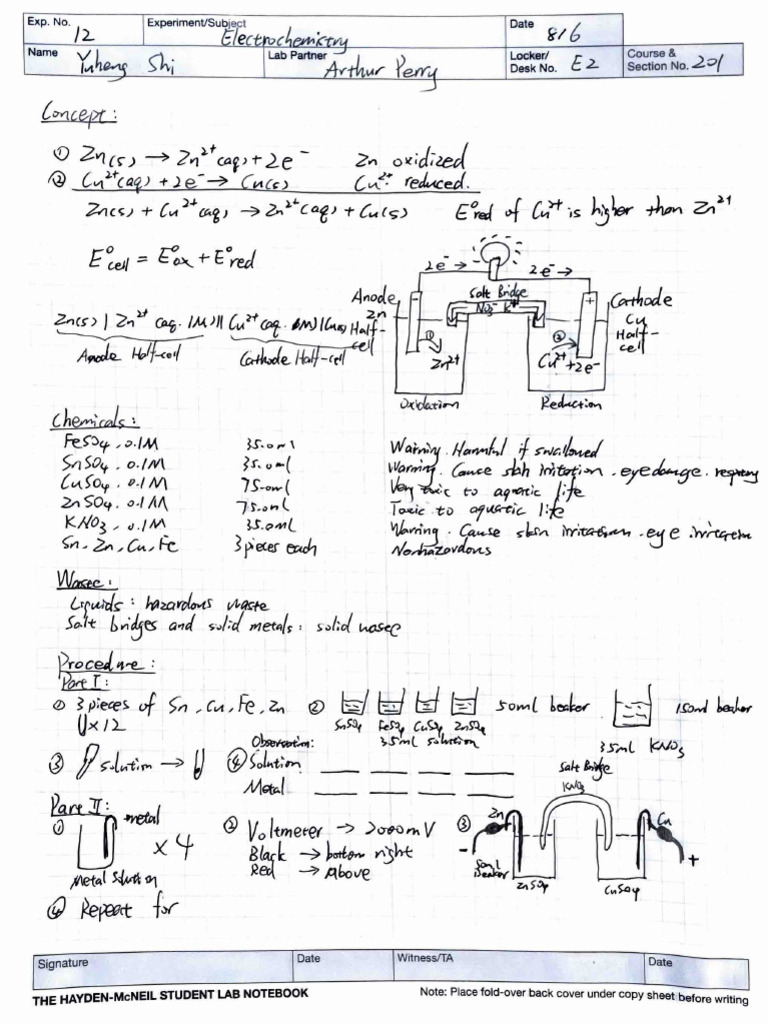 Exp. No. 12 Experiment/Subject Electrochemistry Date 8/6
Name Yuheng Shi Lab Partner Arthur Perry Locker/Desk No. E2 Course & Section No. 201
Concept:
① Zn(s) → Zn²⁺(aq) + 2e⁻ Zn oxidized
② Cu²⁺(aq) + 2e⁻ → Cu(s) Cu²⁺ reduced.
Zn(s) + Cu²⁺(aq) → Zn²⁺(aq) + Cu(s) E°red of Cu²⁺ is higher than Zn²⁺
E°cell = E°ox + E°red
2e⁻ → 2e⁻ →
Salt Bridge
NO₃⁻ K⁺
Anode
Zn
Half-
cell
- +
Cathode
Cu
Half-
cell
① Zn²⁺
② Cu²⁺+2e⁻
Oxidation Reduction
Zn(s) | Zn²⁺(aq. 1M) || Cu²⁺(aq. 1M) | Cu(s)
Anode Half-cell Cathode Half-cell
Chemicals:
FeSO₄, 0.1M 35.0ml Warning. Harmful if swallowed
SnSO₄, 0.1M 35.0ml Warning. Cause skin irritation. eye damage.
CuSO₄, 0.1M 75.0ml Very toxic to aquatic life
ZnSO₄, 0.1M 75.0ml Toxic to aquatic life
KNO₃, 0.1M 35.0ml Warning. Cause skin irritation. eye irritation
Sn, Zn, Cu, Fe 3 pieces each Nonhazardous
Wasee:
Liquids: hazardous waste
Salt bridges and solid metals: solid wasee
Procedure:
Part I:
① 3 pieces of Sn, Cu, Fe, Zn
x12
② SnSO₄ FeSO₄ CuSO₄ ZnSO₄ 50ml beaker. 150ml beaker
35ml solution 35ml KNO₃
③ solution →
④ Observation:
Solution
Metal
Part II:
① metal x4
Metal Solution
② Voltmeter → 2000mV
Black → bottom right
Red → above
③ Salt Bridge
KNO₃
Zn Cu
- +
50ml
Beaker
ZnSO₄ CuSO₄
④ Repeat for
Signature Date Witness/TA Date
THE HAYDEN-McNEIL STUDENT LAB NOTEBOOK Note: Place fold-over back cover under copy sheet before writing